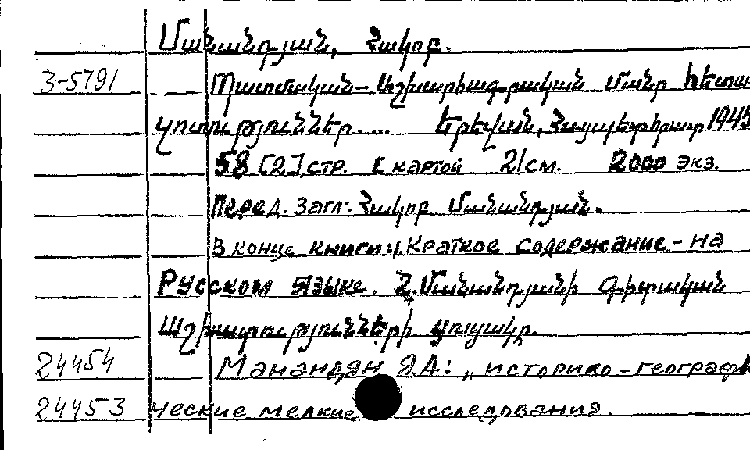 Մանանդյան, Հակոբ.
3-5791 Պատմական-աշխարհագրական մանր հետա
զոտություններ.... Երևան, Հայպետհրատ 1945
58 [2] стр. с картой 21 см. 2000 экз.
Перед. загл: Հակոբ Մանանդյան.
В конце книги: Краткое содержание - на
Русском языке. Հ. Մանանդյանի գիտական
աշխատությունների ցուցակը.
24454 Манандян Я.А: „историко-географи
24453 ческие мелкие исследования.